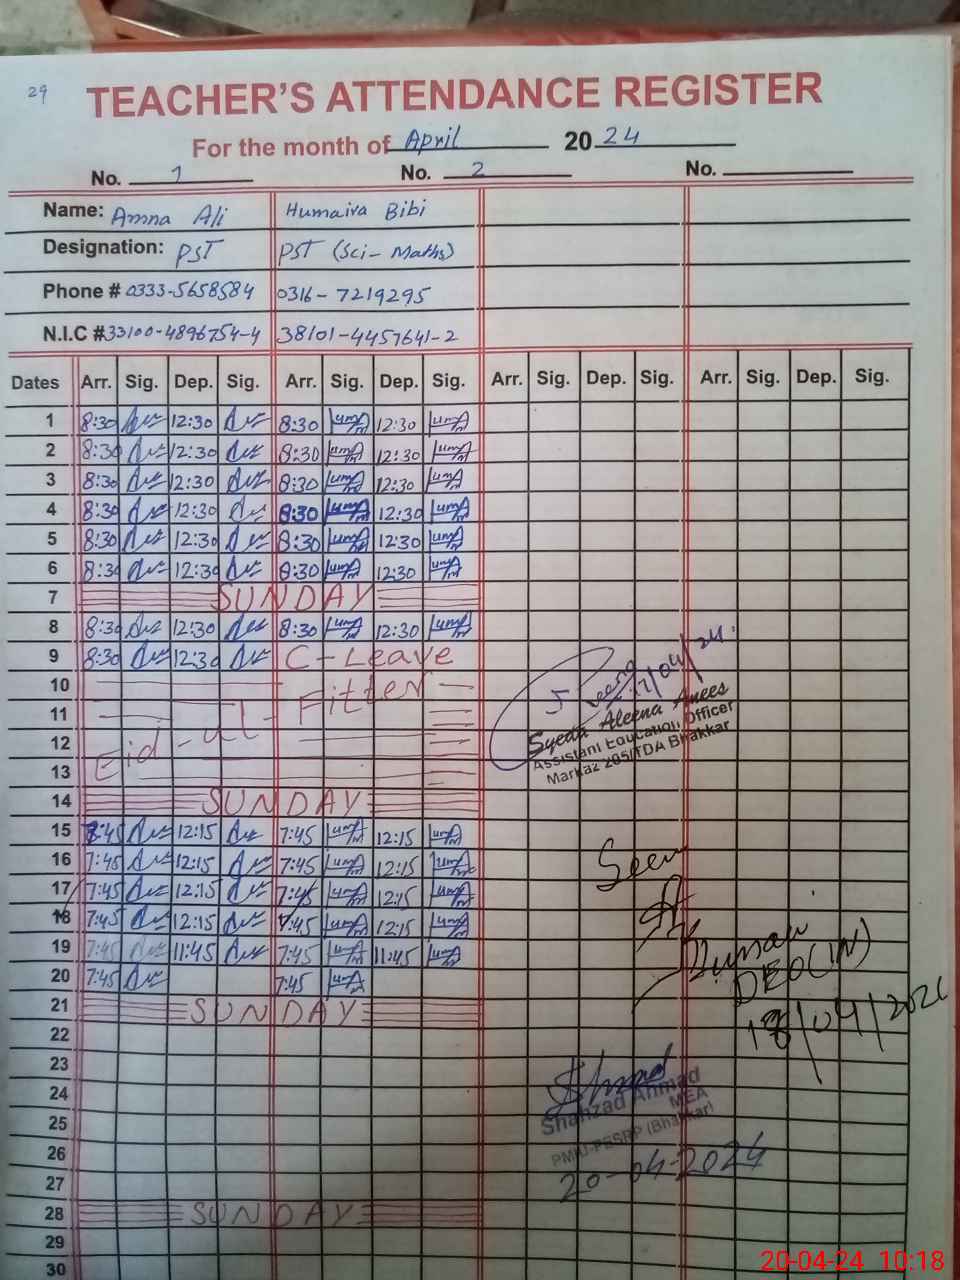 29
TEACHER'S ATTENDANCE REGISTER
For the month of April 20 24
No. 1 No. 2 No.
Name: Amna Ali Humaira Bibi
Designation: PST PST (Sci- Maths)
Phone # 0333-5658584 0316-7219295
N.I.C # 33100-4896754-4 38101-4457641-2
Dates Arr. Sig. Dep. Sig. Arr. Sig. Dep. Sig. Arr. Sig. Dep. Sig. Arr. Sig. Dep. Sig.
1 8:30 12:30 8:30 12:30
2 8:30 12:30 8:30 12:30
3 8:30 12:30 8:30 12:30
4 8:30 12:30 8:30 12:30
5 8:30 12:30 8:30 12:30
6 8:30 12:30 8:30 12:30
7 SUNDAY
8 8:30 12:30 8:30 12:30
9 8:30 12:30 C-Leave
10
11
12
13
Eid-ul-Fitter
14 SUNDAY
15 7:45 12:15 7:45 12:15
16 7:45 12:15 7:45 12:15
17 7:45 12:15 7:45 12:15
18 7:45 12:15 7:45 12:15
19 7:45 11:45 7:45 11:45
20 7:45 7:45
21 SUNDAY
22
23
24
25
26
27
28 SUNDAY
29
30
/04/24.
Syeda Aleena Anees
Assistant Education Officer
Markaz 205/TDA Bhakkar
Seen
DEO(IN)
18/04/202
Shahzad Ahmad
MEA
PMIU-PESRP (Bhakkar)
20-04-2024
20-04-24 10:18